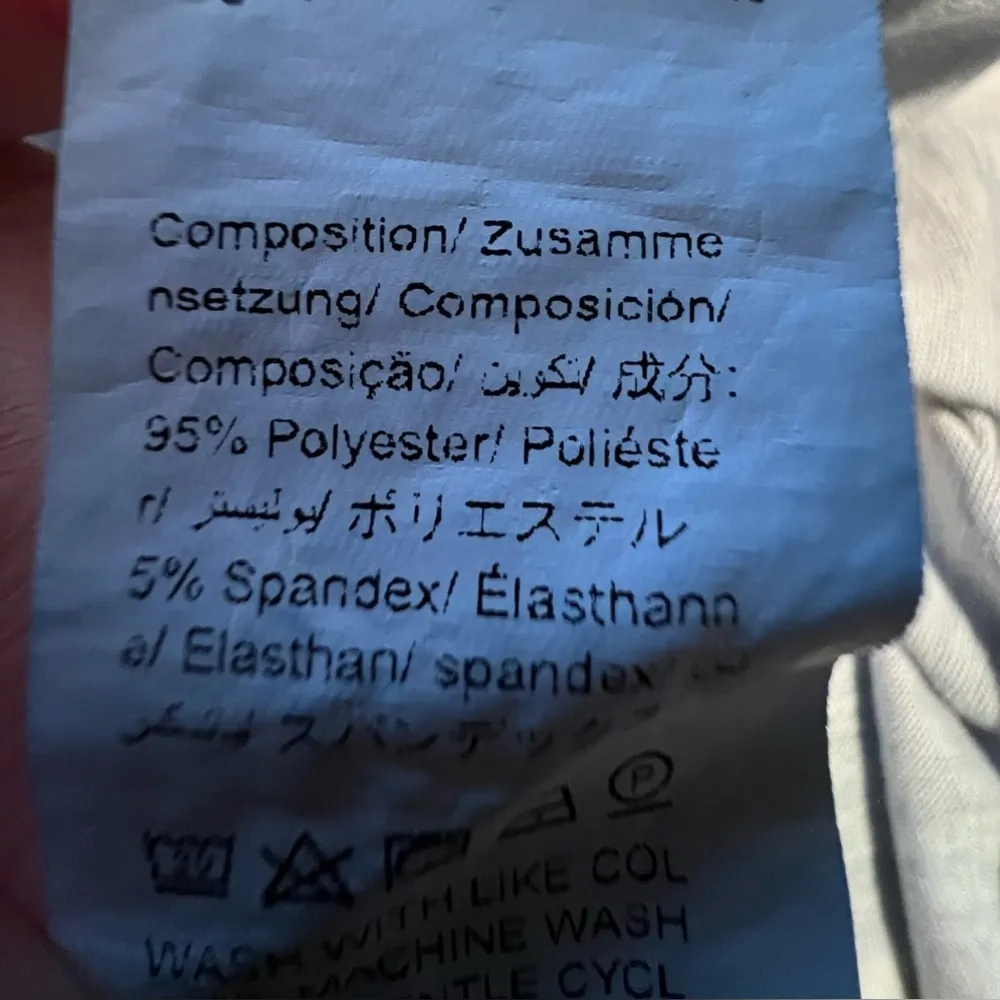 Composition/ Zusamme
nsetzung/ Composición/
Composição/ تكوين/ 成分:
95% Polyester/ Poliéste
r/ بوليستر/ ポリエステル
5% Spandex/ Élasthann
a/ Elasthan/ spandex/
スパンデックス
P
WASH WITH LIKE COL
MACHINE WASH
CYCL